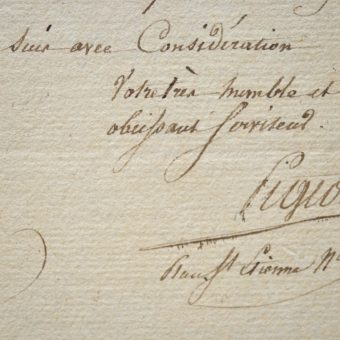 suis avec Considération
Votre très humble et
obeissant serviteur.
St Etienne N